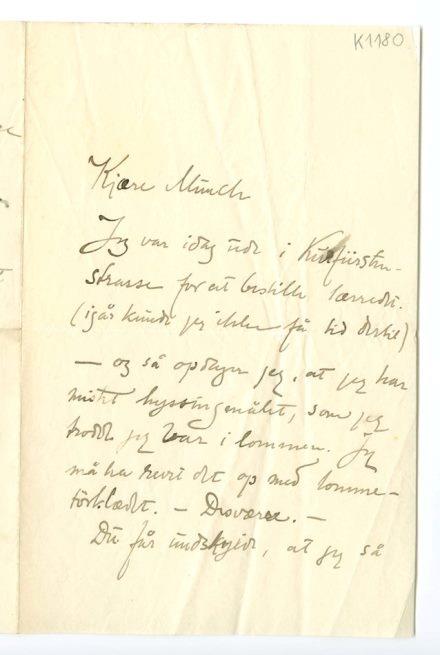 K1180
Kjære Munch
Jeg var idag ude i Kurfürsten-
strasse for at bestille lærredet.
(igår kunde jeg ikke få tid dertil)
— og så opdager jeg, at jeg har
mistet hyssingmålet, som jeg
trodde jeg var i lommen. Jeg
må ha revet det op med lomme-
törklædet. — Desværre. —
Du får undskylde, at jeg så